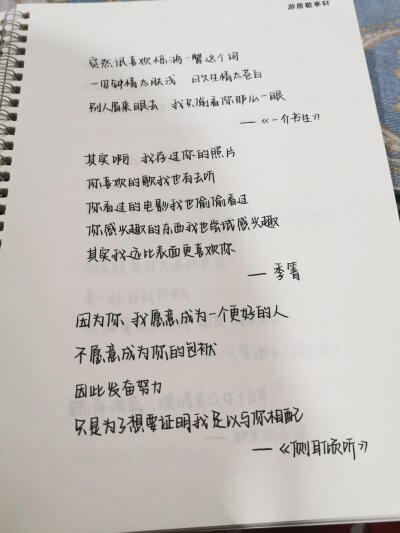 游居敬亭轩
突然很喜欢惊鸿一瞥这个词
一见钟情太肤浅 日久生情太苍白
别人眉来眼去 我只偷看你那么一眼
——《一介书生》
其实啊 我存过你的照片
你喜欢的歌我也有去听
你看过的电影我也偷偷看过
你感兴趣的东西我也尝试感兴趣
其实我远比表面更喜欢你
——季箐
因为你 我愿意成为一个更好的人
不愿意成为你的包袱
因此发奋努力
只是为了想要证明我足以与你相配
——《侧耳倾听》